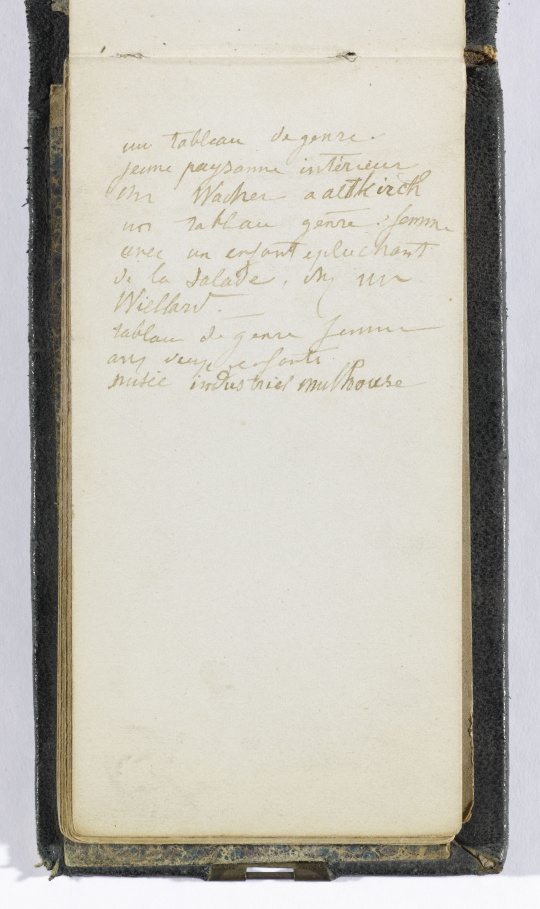 un tableau de genre.
jeune paysanne intérieur
chz Wacker a altkirch
un tableau genre. femme
avec un enfant epluchant
de la salade, chz mr
Wiellard.
tableau de genre femme
avec deux enfants
musée industriel mulhouse